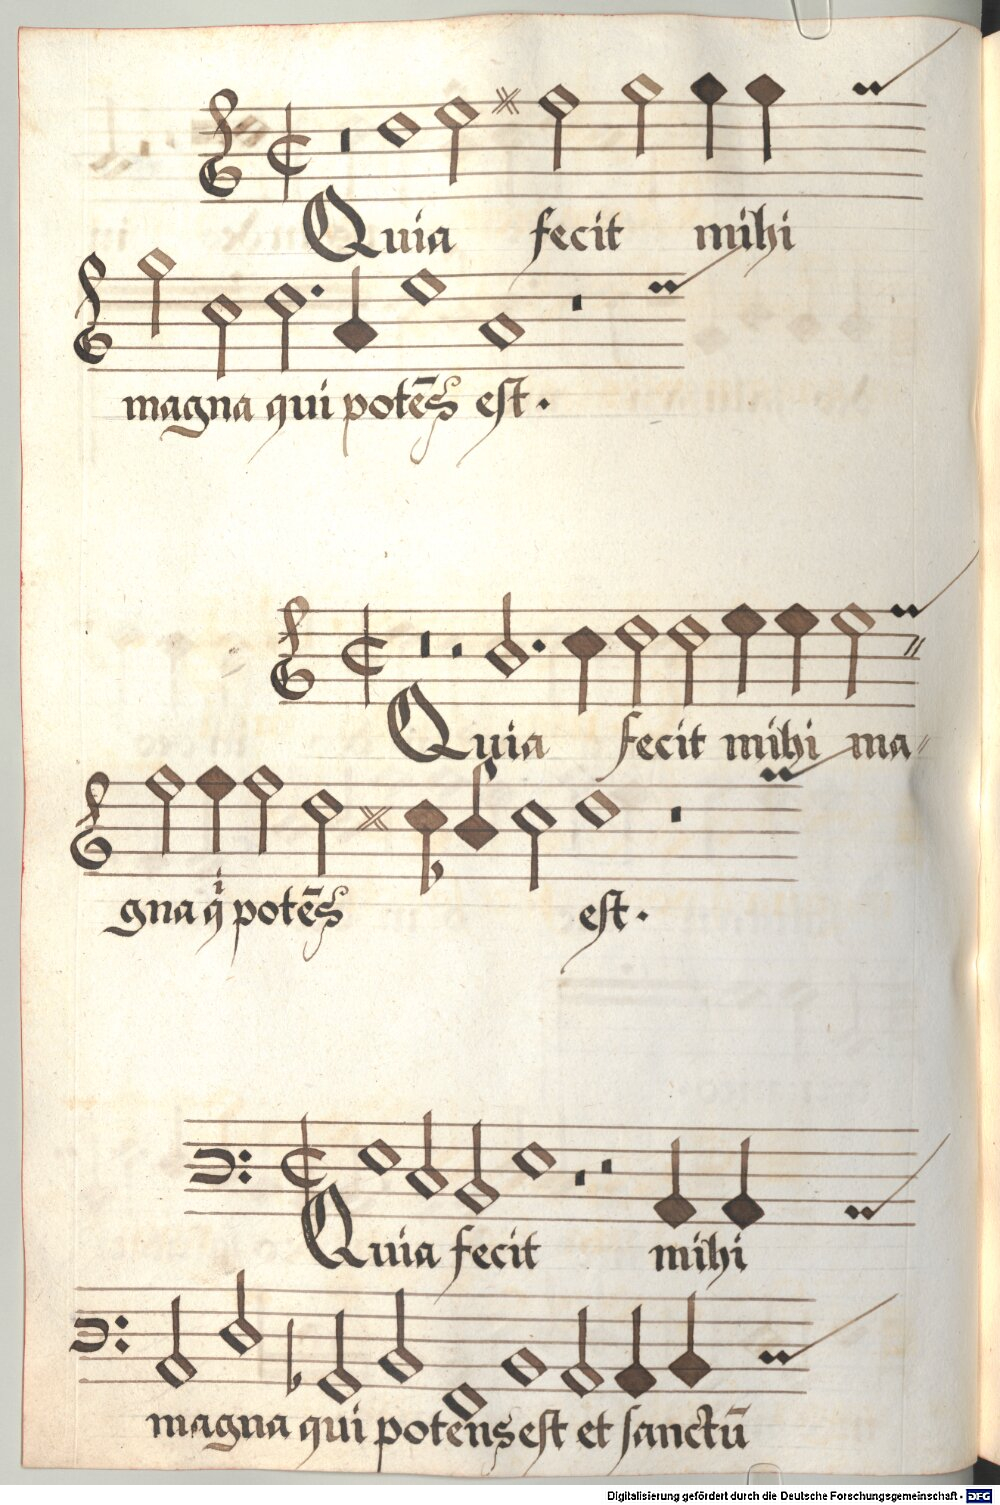 Quia fecit mihi
magna qui potēs est.
Quia fecit mihi ma
gna q potēs est.
Quia fecit mihi
magna qui potens est et sanctū
Digitalisierung gefördert durch die Deutsche Forschungsgemeinschaft - DFG